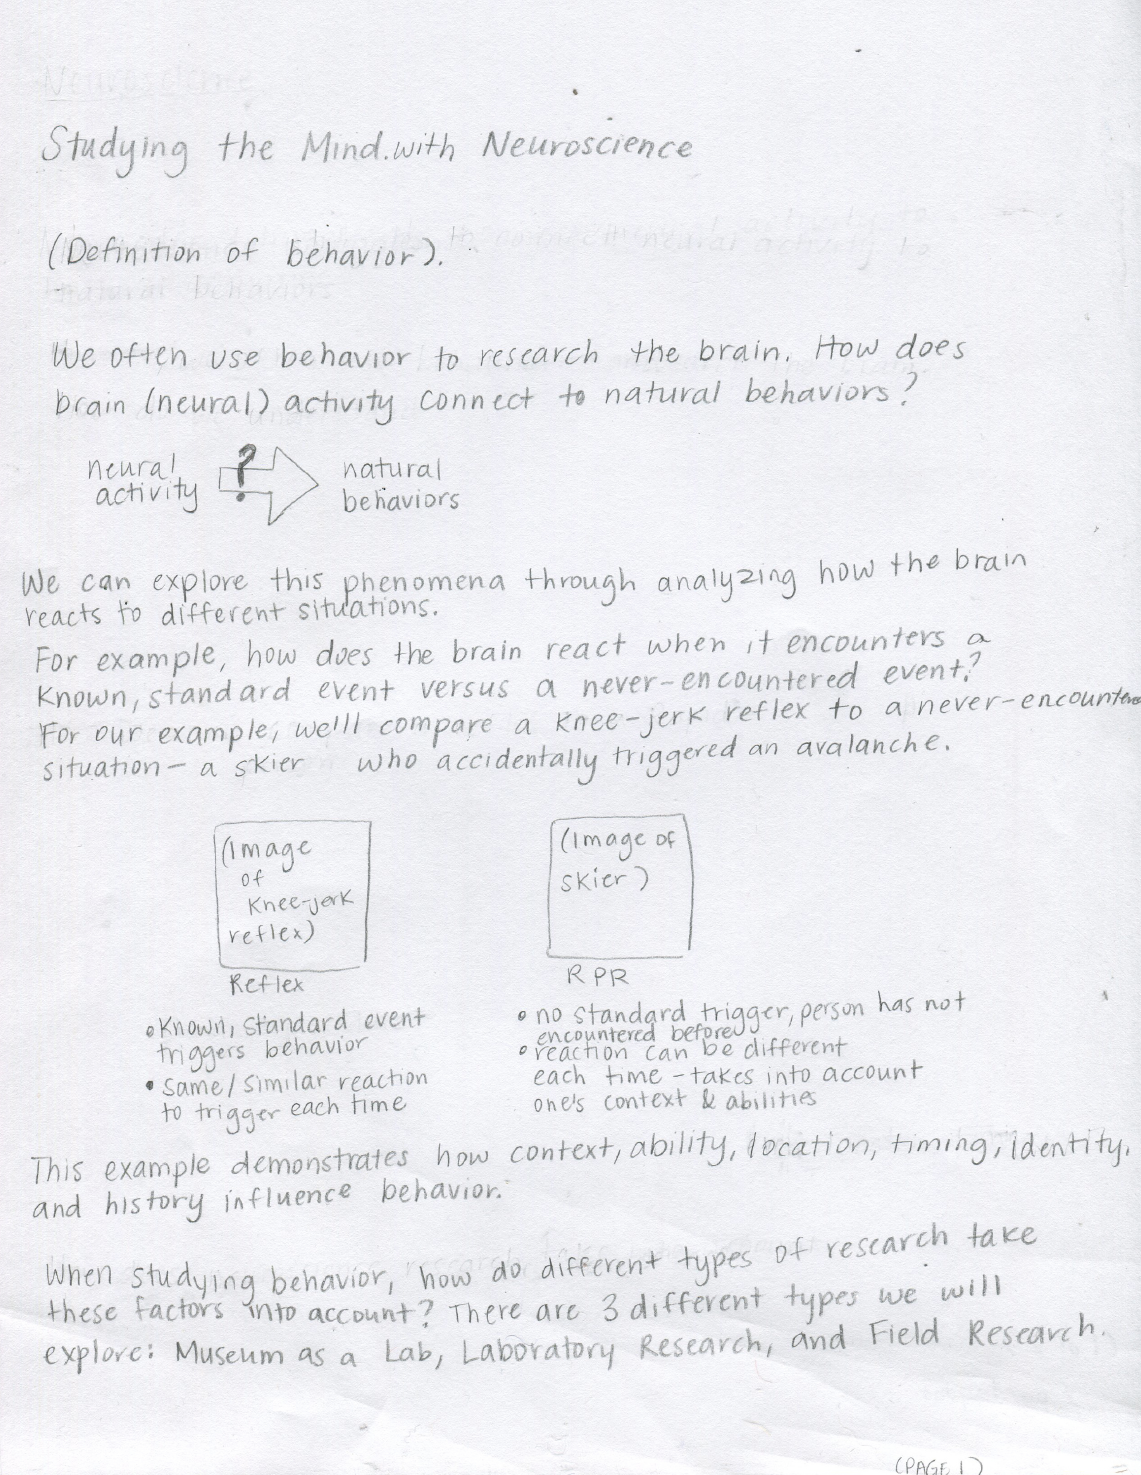 Studying the Mind.with Neuroscience
(Definition of behavior).
We often use behavior to research the brain. How does
brain (neural) activity connect to natural behaviors?
neural
activity
?
natural
behaviors
We can explore this phenomena through analyzing how the brain
reacts to different situations.
For example, how does the brain react when it encounters a
known, standard event versus a never-encountered event?
For our example, we'll compare a knee-jerk reflex to a never-encountered
situation- a skier who accidentally triggered an avalanche.
(Image
of
knee-jerk
reflex)
Reflex
• Known, standard event
triggers behavior
• same/similar reaction
to trigger each time
(Image of
skier)
RPR
• no standard trigger, person has not
encountered before
• reaction can be different
each time - takes into account
one's context & abilities
This example demonstrates how context, ability, location, timing, identity,
and history influence behavior.
When studying behavior, how do different types of research take
these factors into account? There are 3 different types we will
explore: Museum as a Lab, Laboratory Research, and Field Research.
(PAGE 1)